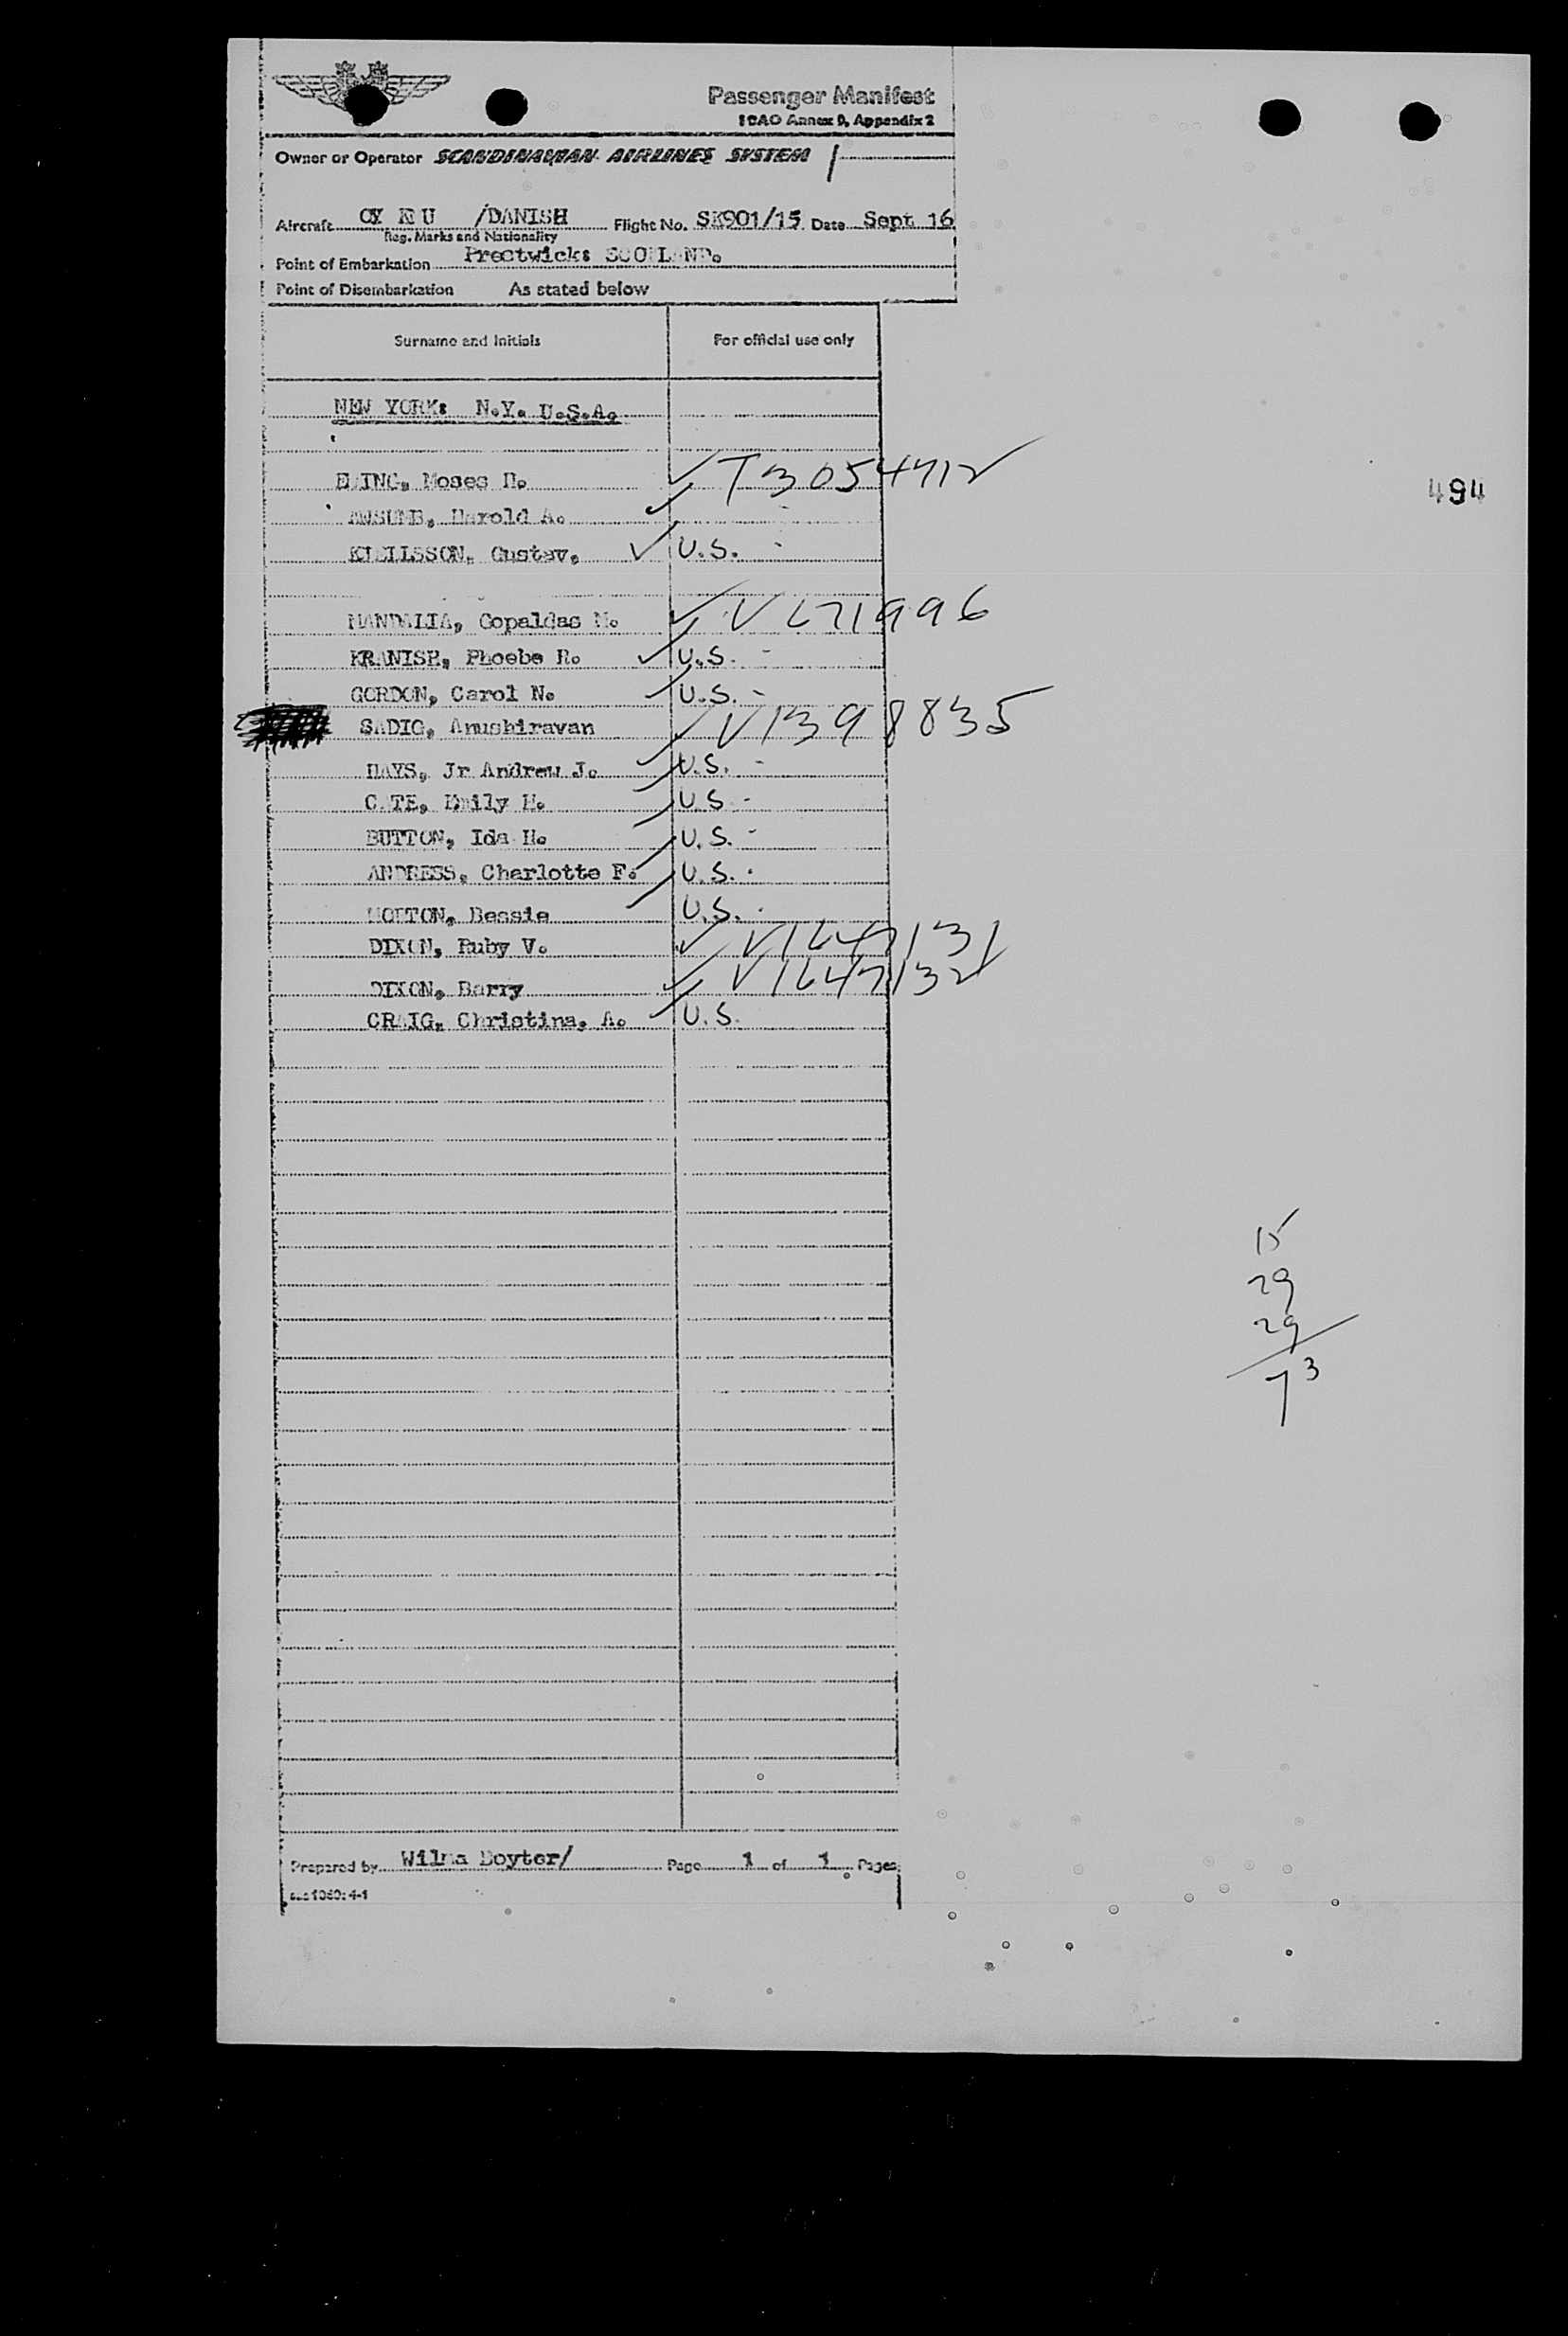 Passenger Manifest
ICAO Annex 9, Appendix 2
Owner or Operator SCANDINAVIAN AIRLINES SYSTEM
Aircraft OY K U /DANISH Flight No. SK901/15 Date Sept 16
Reg. Marks and Nationality
Point of Embarkation Prestwick: SCOTLAND.
Point of Disembarkation As stated below
Surname and Initials For official use only
NEW YORK: N.Y. U.S.A.
Moses T3054712
494
Harold A.
Gustav, U.S.
MANDALIA, Gopaldas M. V L71996
KRANISH, Phoebe R. U.S.
GORDON, Carol N. U.S.
SADIG, Anushiravan V1398835
HAYS, Jr Andrew J. U.S.
CATE, Emily H. U.S
BUTTON, Ida H. U.S.
ANDRESS, Charlotte F. U.S.
Bessie U.S.
DIXON, Ruby V. V1647131
DIXON, Barry V1647132
CRAIG, Christina, A. U.S.
15
29
29
73
Prepared by Wilma Doyter/ Page 1 of 1 Pages